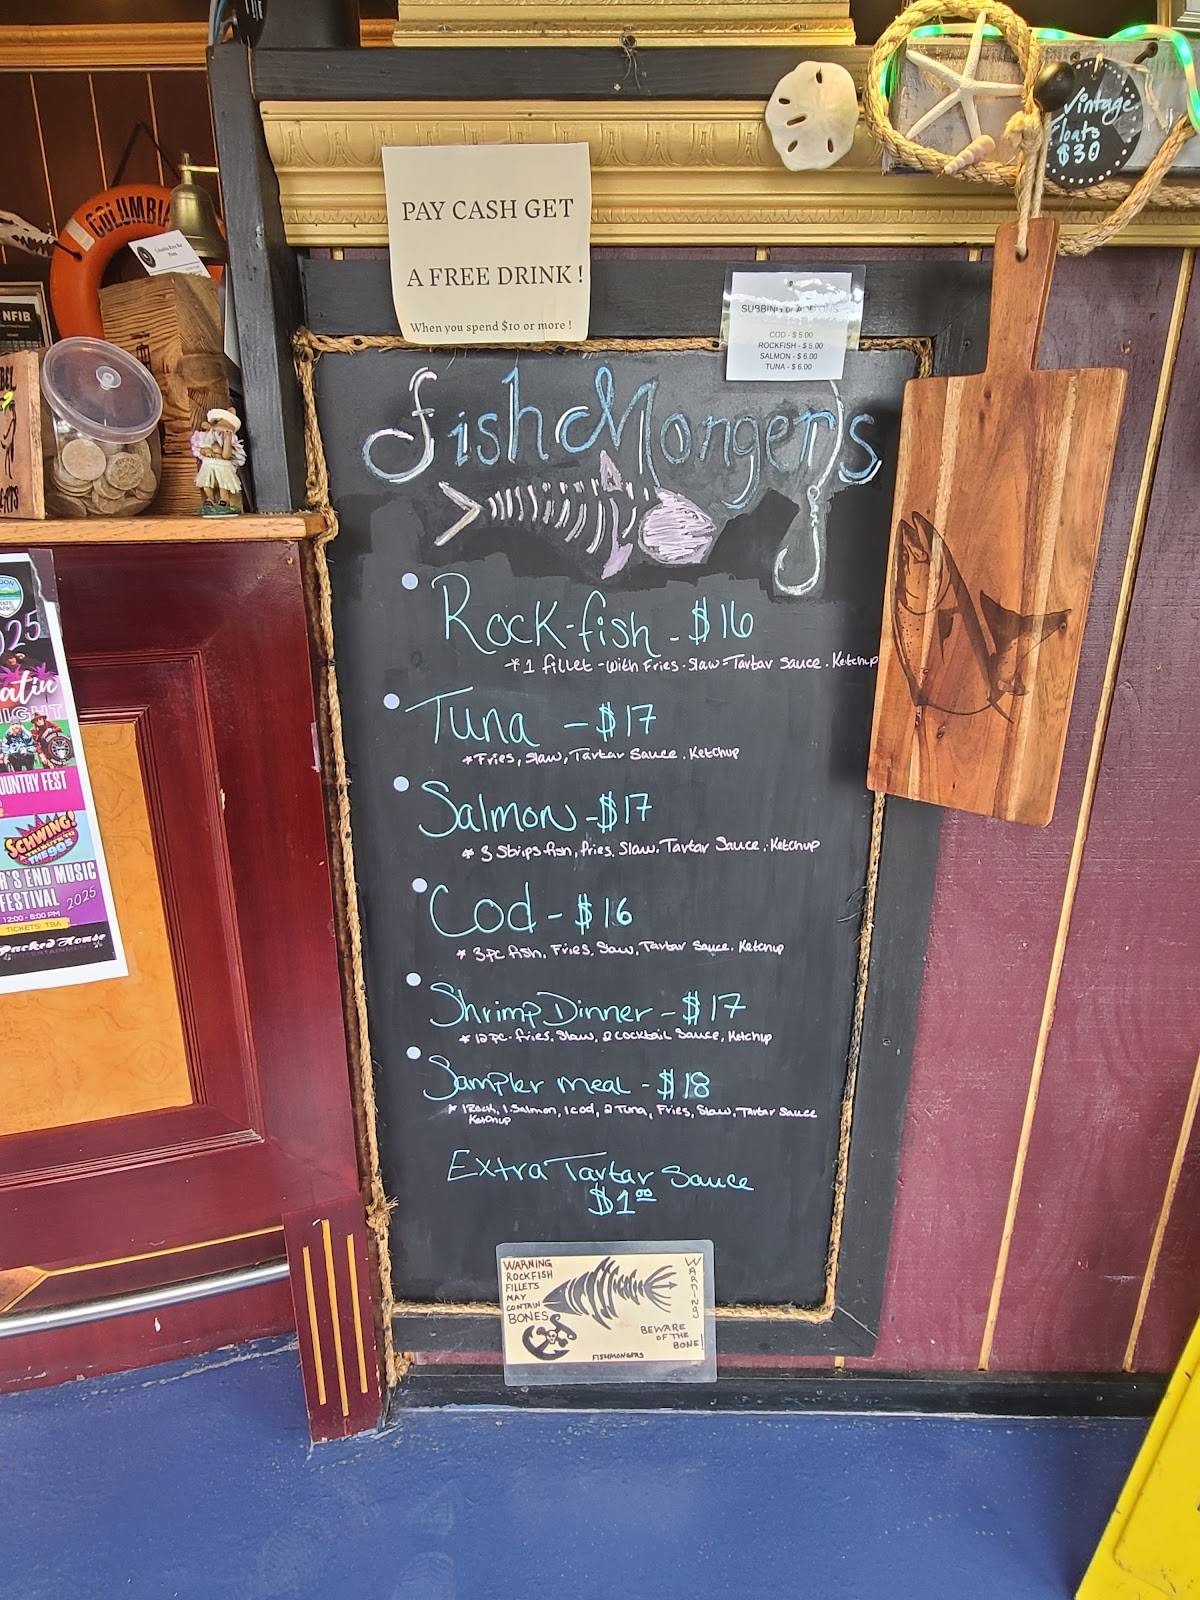 COLUMBIA
NFIB
PAY CASH GET
A FREE DRINK !
When you spend $10 or more !
SUBBING or ADD ONS
COD - $ 5.00
ROCKFISH - $ 5.00
SALMON - $ 6.00
TUNA - $ 6.00
Vintage
Floats
$30
FishMongers
Rock-fish - $16
* 1 fillet - with Fries - Slaw - Tartar Sauce . Ketchup
Tuna - $17
* Fries, Slaw, Tartar Sauce . Ketchup
Salmon - $17
* 3 Strips fish, fries, Slaw, Tartar Sauce . Ketchup
Cod - $16
* 3pc fish, Fries, Slaw, Tartar Sauce, Ketchup
Shrimp Dinner - $17
* 12pc - fries, Slaw, 2 cocktail Sauce, Ketchup
Sampler meal - $18
* 1 Rock, 1 Salmon, 1 cod, 2 Tuna, Fries, Slaw, Tartar Sauce
Ketchup
Extra Tartar Sauce
$1.00
WARNING
ROCKFISH
FILLETS
MAY
CONTAIN
BONES
WARNING
BEWARE
OF THE
BONE!
FISHMONGERS
025
atin
NIGHT
OUNTRY FEST
SCHWING!
A TRIBUTE TO
THE 90S
R'S END MUSIC
FESTIVAL 2025
12:00 - 8:00 PM
TICKETS: TBA
Packed House
ENTERTAINMENT